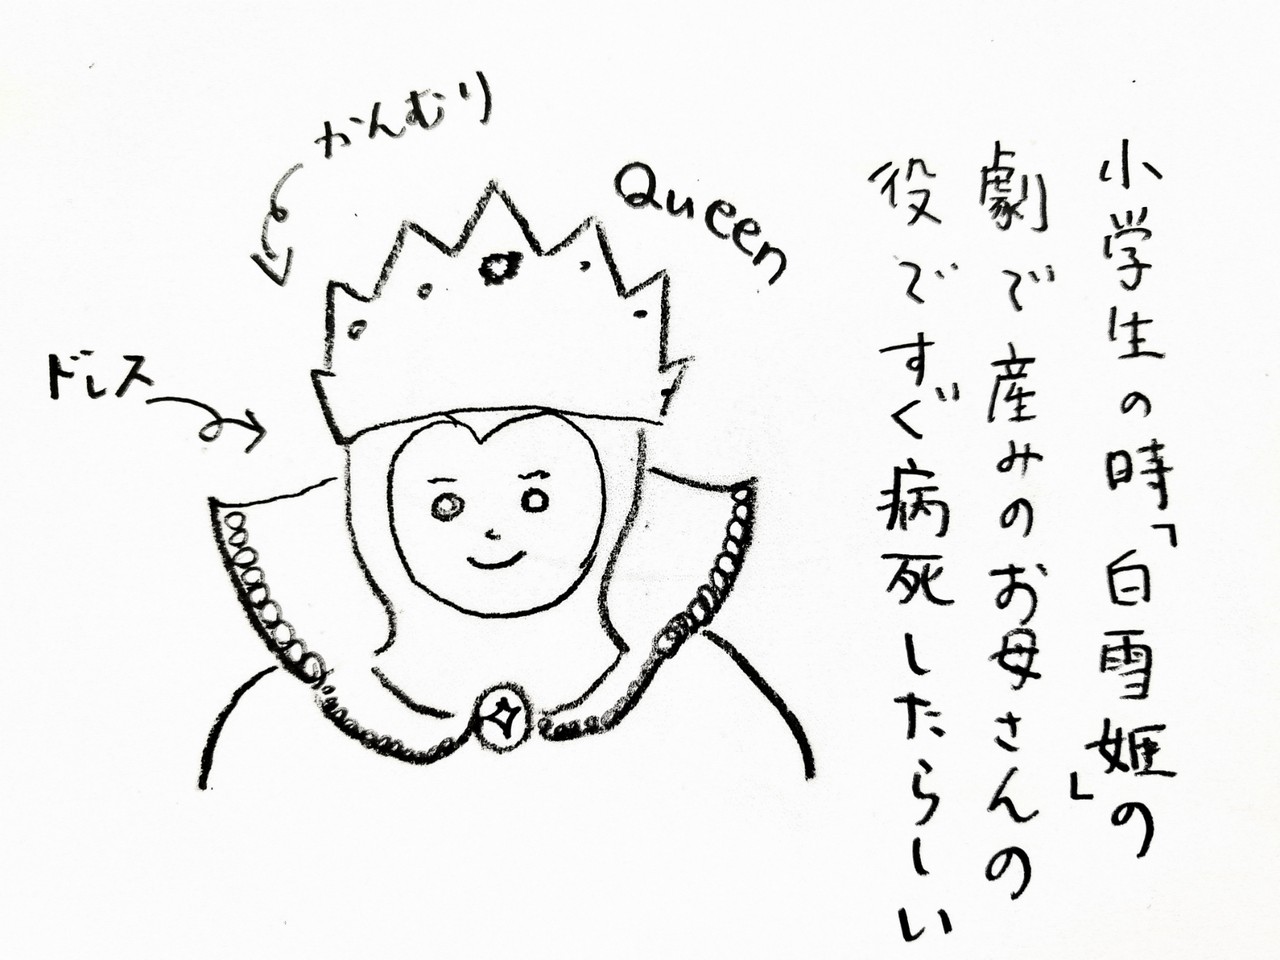 小学生の時「白雪姫」の
劇で産みのお母さんの
役ですぐ病死したらしい
かんむり
Queen
ドレス